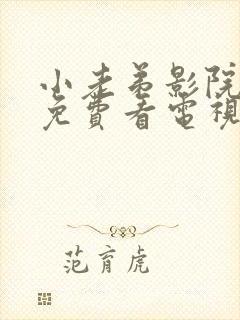 小老弟影院
免費看電視
范育虎